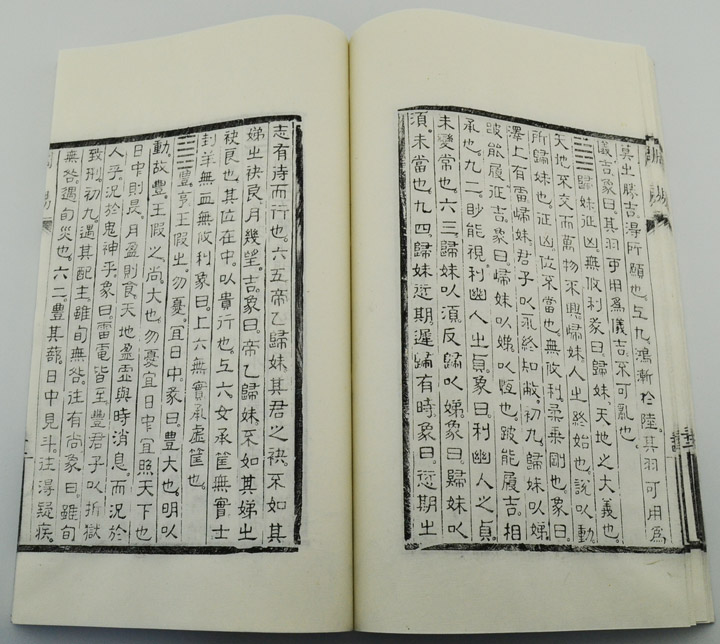 莫之勝吉。得所願也。上九。鴻漸於陸。其羽可用爲
儀。吉。象曰。其羽可用爲儀吉。不可亂也。
䷵歸妹。征凶。無攸利。彖曰。歸妹。天地之大義也。
天地不交而萬物不興。歸妹人之終始也。說以動。
所歸妹也。征凶。位不當也。無攸利。柔乘剛也。象曰。
澤上有雷。歸妹。君子以永終知敝。初九。歸妹以娣。
跛能履。征吉。象曰。歸妹以娣。以恆也。跛能履吉。相
承也。九二。眇能視。利幽人之貞。象曰。利幽人之貞。
未變常也。六三。歸妹以須。反歸以娣。象曰。歸妹以
須。未當也。九四。歸妹愆期。遲歸有時。象曰。愆期之
志。有待而行也。六五。帝乙歸妹。其君之袂。不如其
娣之袂良。月幾望。吉。象曰。帝乙歸妹。不如其娣之
袂良也。其位在中。以貴行也。上六。女承筐無實。士
刲羊無血。無攸利。象曰。上六無實。承虛筐也。
䷶豐。亨。王假之。勿憂。宜日中。彖曰。豐大也。明以
動。故豐。王假之。尚大也。勿憂宜日中。宜照天下也。
日中則昃。月盈則食。天地盈虛。與時消息。而況於
人乎。況於鬼神乎。象曰。雷電皆至。豐。君子以折獄
致刑。初九。遇其配主。雖旬無咎。往有尚。象曰。雖旬
無咎。過旬災也。六二。豐其蔀。日中見斗。往得疑疾。